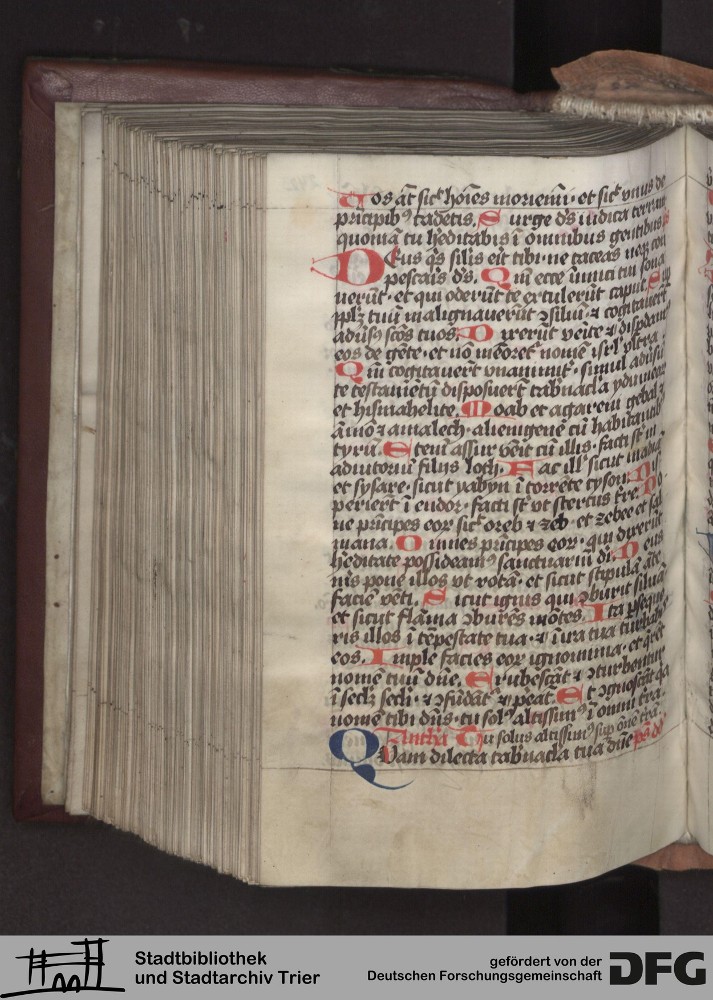 Vos at̄ sic̄ hoīes moriemī · et sic̄ vnus de
prīcipib⁹ cadetis. Surge ds̄ iudica terram
quoniā tu h'editabis ī omnibus gentibus
Deus q̄s silis erit tibi · ne taceas neqʒ con
pescaris ds̄. Qm̄ ecce inimici tui sona
uerūt · et qui oderūt te extulerūt caput. Sup
pplʒ tuū malignauerūt ɔsiliū · ⁊ cogitauerūt
adūsꝰ scōs tuos. Dixerūt venite ⁊ disp̄dam⁹
eos de gēte · et nō memoret̄ nomē isrl̄ vltra
Qm̄ cogitauerūt vnanimit̄ · simul adūsū
te testamētū disposuerūt tab'nacl̄a ydumeor̄
et hismahelite. Moab et agareni gebal ⁊
āmō ⁊ amalech · alienigene cū habitantib⁹
tyrū. Etenī assur vēit cū illis · facti st̄ in
adiutoriū filijs loth. Fac ill̄ sicut madiā
et sysare · sicut yabyn ī torrēte cyson. Dis
perierūt ī endor · facti st̄ vt stercus t̄re. Po
ne prīcipes eor̄ sic̄ oreb ⁊ zeb · et zebee et sal
mana. Omnes prīcipes eor̄ · qui dixerūt
h'editate possideam⁹ sanctuariū di. Deus
m̄s pone illos vt rotā · et sicut stipulā āte
faciē vēti. Sicut ignis qui ɔburit siluā
et sicut flāma ɔburēs mōtes. Ita p̄seque
ris illos ī tēpestate tua · ⁊ ī ira tua turbabis
eos. Imple facies eor̄ ignominia · et q̄rēt
nomē tuū dn̄e. Erubescāt ⁊ ɔturbentur
ī seclʒ secli · ⁊ ɔfūdāt̄ ⁊ pereāt. Et ɔgnoscāt qa
nomē tibi dn̄s · tu sol⁹ altissim⁹ ī omni t̄ra.
Antiha Tu solus altissim⁹ sup ōnē t̄rā. ps̄ dd
Quam dilecta tab'nacl̄a tua dn̄e
Stadtbibliothek
und Stadtarchiv Trier
gefördert von der
Deutschen Forschungsgemeinschaft
DFG